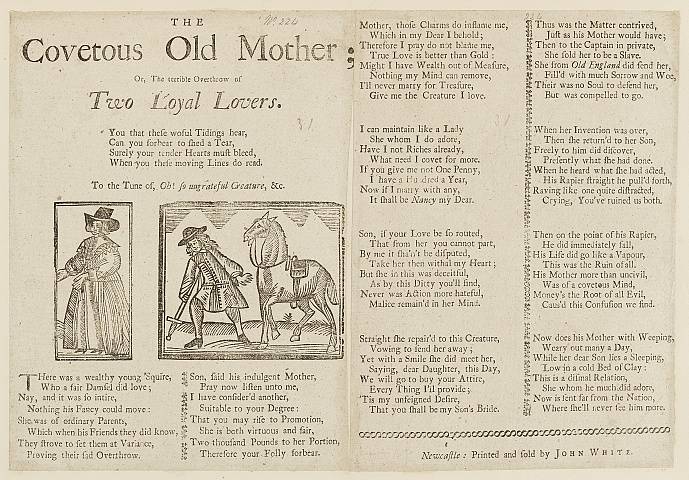 THE
Nº. 224
Covetous Old Mother;
Or, The terrible Overthrow of
Two Loyal Lovers.
You that theſe woful Tidings hear,
Can you forbear to ſhed a Tear,
Surely your tender Hearts muſt bleed,
When you theſe moving Lines do read.
To the Tune of, Oh! ſo ungrateful Creature, &c.
THere was a wealthy young 'Squire,
Who a fair Damſel did love;
Nay, and it was ſo intire,
Nothing his Fancy could move:
She was of ordinary Parents,
Which when his Friends they did know,
They ſtrove to ſet them at Variance,
Proving their ſad Overthrow.
Son, ſaid his indulgent Mother,
Pray now liſten unto me,
I have conſider'd another,
Suitable to your Degree:
That you may riſe to Promotion,
She is both virtuous and fair,
Two thouſand Pounds to her Portion,
Therefore your Folly forbear.
Mother, thoſe Charms do inflame me,
Which in my Dear I behold;
Therefore I pray do not blame me,
True Love is better than Gold:
Might I have Wealth out of Meaſure,
Nothing my Mind can remove,
I'll never marry for Treaſure,
Give me the Creature I love.
I can maintain like a Lady
She whom I do adore,
Have I not Riches already,
What need I covet for more.
If you give me not One Penny,
I have a Hundred a Year,
Now if I marry with any,
It ſhall be Nancy my Dear.
Son, if your Love be ſo routed,
That from her you cannot part,
By me it ſha'n't be diſputed,
Take her then withal my Heart;
But ſhe in this was deceitful,
As by this Ditty you'll find,
Never was Action more hateful,
Malice remain'd in her Mind.
Straight ſhe repair'd to this Creature,
Vowing to ſend her away;
Yet with a Smile ſhe did meet her,
Saying, dear Daughter, this Day,
We will go to buy your Attire,
Every Thing I'll provide;
'Tis my unfeigned Deſire,
That you ſhall be my Son's Bride.
Thus was the Matter contrived,
Juſt as his Mother would have;
Then to the Captain in private,
She ſold her to be a Slave.
She from Old England did ſend her,
Fill'd with much Sorrow and Woe,
Their was no Soul to defend her,
But was compelled to go.
When her Invention was over,
Then ſhe return'd to her Son,
Freely to him did diſcover,
Preſently what ſhe had done.
When he heard what ſhe had acted,
His Rapier ſtraight he pull'd forth,
Raving like one quite diſtracted,
Crying, You've ruined us both.
Then on the point of his Rapier,
He did immediately fall,
His Life did go like a Vapour,
This was the Ruin of all.
His Mother more than uncivil,
Was of a covetous Mind,
Money's the Root of all Evil,
Caus'd this Confuſion we find.
Now does his Mother with Weeping,
Weary out many a Day,
While her dear Son lies a Sleeping,
Low in a cold Bed of Clay:
This is a diſmal Relation,
She whom he much did adore,
Now is ſent far from the Nation,
Where ſhe'll never ſee him more.
Newcaſtle: Printed and ſold by JOHN WHITE.